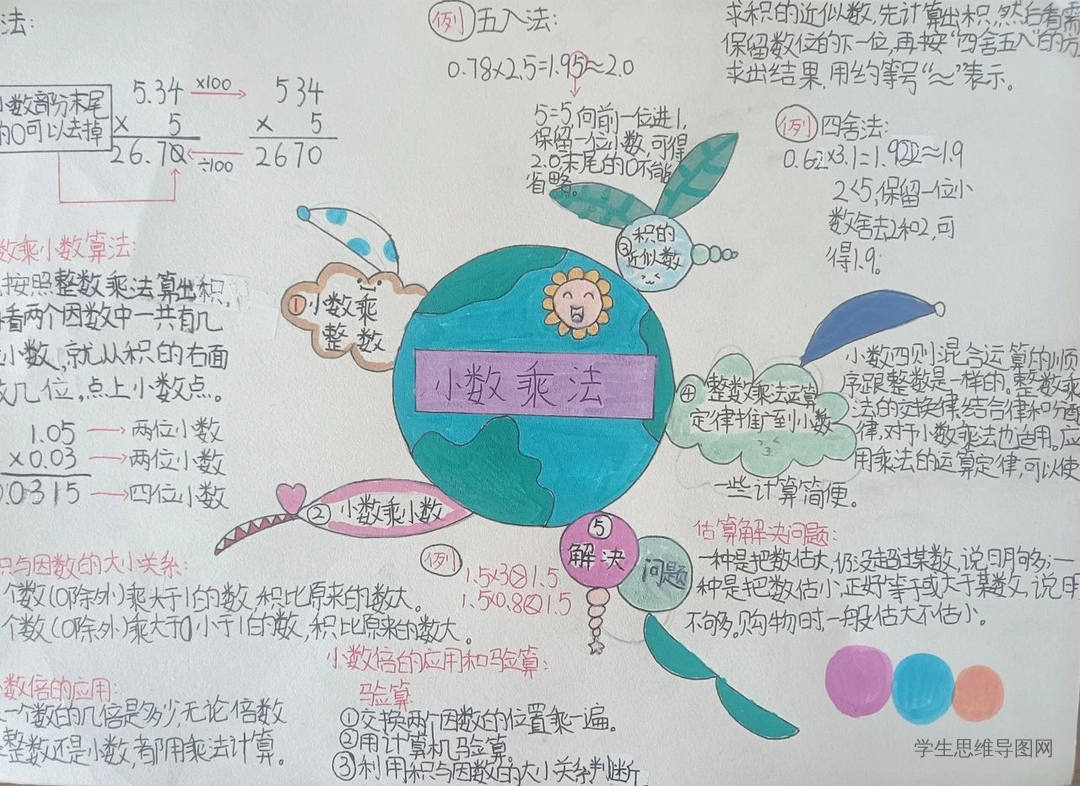 法:
5.34 ×100 534
小数部分末尾
的0可以去掉
× 5 × 5
26.70 ÷100 2670
数乘小数算法:
按照整数乘法算出积,
看两个因数中一共有几
小数,就从积的右面
几位,点上小数点。
1.05 两位小数
×0.03 两位小数
0.0315 四位小数
积与因数的大小关系:
个数(0除外)乘大于1的数,积比原来的数大。
个数(0除外)乘大于0小于1的数,积比原来的数大。
数倍的应用:
一个数的几倍是多少,无论倍数
整数还是小数,都用乘法计算。
例 五入法:
0.78×2.5=1.95≈2.0
5=5,向前一位进1,
保留一位小数,可得
2.0,末尾的0不能
省略。
求积的近似数,先计算出积,然后看需
保留数位的下一位,再按“四舍五入”的方
求出结果,用约等号“≈”表示。
例 四舍法:
0.62×3.1=1.922≈1.9
2<5,保留一位小
数,舍去2和2,可
得1.9。
③积的
近似数
①小数乘
整数
小数乘法
④整数乘法运算
定律推广到小数
小数四则混合运算的顺
序跟整数是一样的。整数乘
法的交换律,结合律和分配
律,对于小数乘法也适用。应
用乘法的运算定律,可以使
一些计算简便。
②小数乘小数
⑤
解决
问题
例
1.5×3>1.5
1.5×0.8<1.5
估算解决问题:
一种是把数估大,仍没超过某数,说明够;一
种是把数估小,正好等于或大于某数,说明
不够。购物时,一般估大不估小。
小数倍的应用和验算:
验算
①交换两个因数的位置乘一遍。
②用计算机验算。
③利用积与因数的大小关系判断。
学生思维导图网